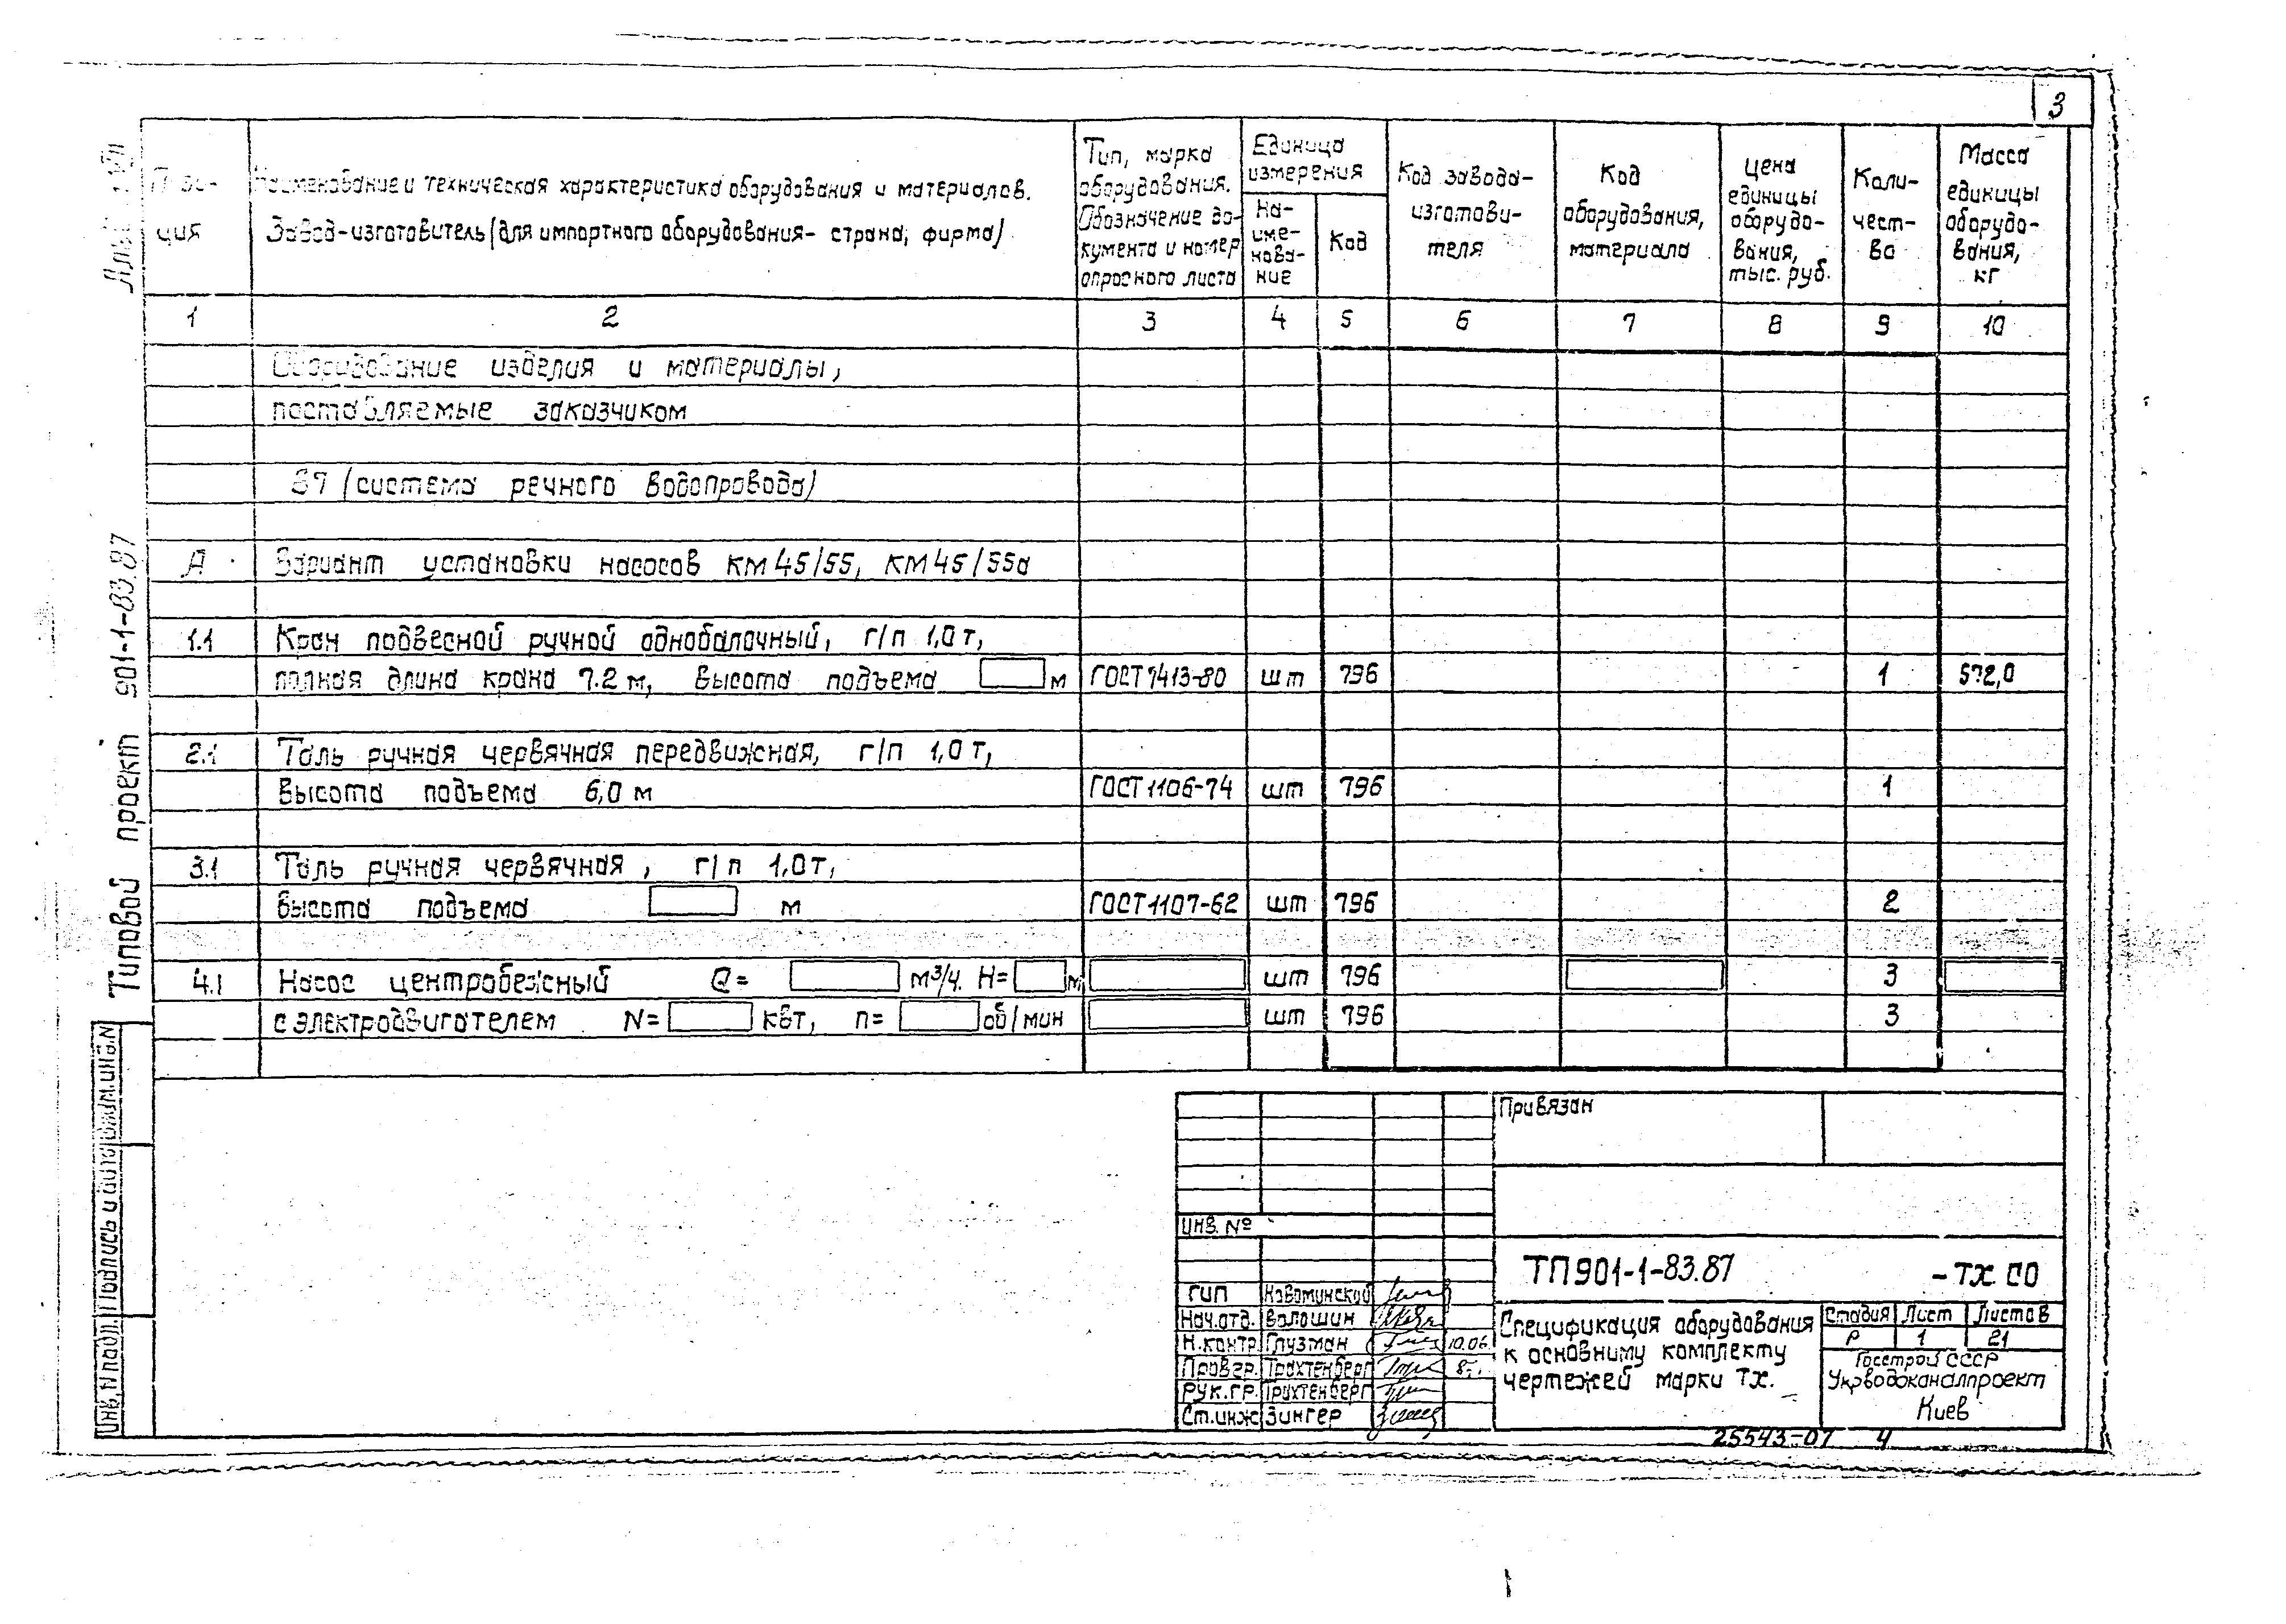 3
Пози-
ция
Наименование и техническая характеристика оборудования и материалов.
Завод-изготовитель (для импортного оборудования - страна, фирма)
Тип, марка
оборудования.
Обозначение до-
кумента и номер
опросного листа
Единица
измерения
На-
име-
нова-
ние
Код
Код завода-
изготови-
теля
Код
оборудования,
материала
Цена
единицы
оборудо-
вания,
тыс. руб.
Коли-
чест-
во
Масса
единицы
оборудо-
вания,
кг
1 2 3 4 5 6 7 8 9 10
Оборудование изделия и материалы,
поставляемые заказчиком
В7 (система речного водопровода)
А Вариант установки насосов КМ 45/55, КМ 45/55а
1.1 Кран подвесной ручной однобалочный, г/п 1,0 т,
полная длина крана 7.2 м, высота подъема м ГОСТ 7413-80 шт 796 1 572,0
2.1 Таль ручная червячная передвижная, г/п 1,0 т,
высота подъема 6,0 м ГОСТ 1106-74 шт 796 1
3.1 Таль ручная червячная, г/п 1,0 т,
высота подъема м ГОСТ 1107-62 шт 796 2
4.1 Насос центробежный Q= м³/ч. H= м шт 796 3
с электродвигателем N= квт, n= об/мин шт 796 3
Типовой проект 901-1-83.87
Инв. N подл. Подпись и дата Взам. инв. N
Привязан
Инв. №
ТП 901-1-83.87 -ТХ.СО
ГИП Новоминский
Нач.отд. Волошин
Н.контр. Глузман 10.06.
Провер. Трахтенберг
Рук.гр. Трахтенберг
Ст.инж Зингер
Спецификация оборудования
к основниму комплекту
чертежей марки ТХ.
Стадия Лист Листов
Р 1 21
Госстрой СССР
Укрводоканалпроект
Киев
25543-07 4